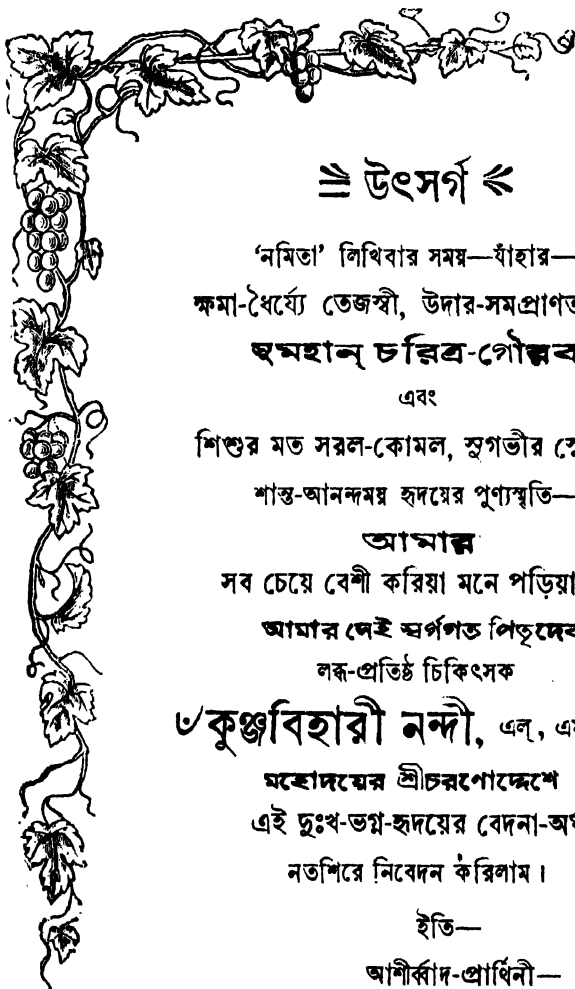 উৎসর্গ
‘নমিতা’ লিখিবার সময়—যাঁহার—
ক্ষমা-ধৈর্য্যে তেজস্বী, উদার-সমপ্রাণত
সুমহান্ চরিত্র-গৌরব
এবং
শিশুর মত সরল-কোমল, সুগভীর
শান্ত-আনন্দময় হৃদয়ের পুণ্যস্মৃতি—
আমার
সব চেয়ে বেশী করিয়া মনে পড়িয়া
আমার সেই স্বর্গগত পিতৃদেব
লব্ধ-প্রতিষ্ঠ চিকিৎসক
৺কুঞ্জবিহারী নন্দী, এল্, এম
মহোদয়ের শ্রীচরণোদ্দেশে
এই দুঃখ-ভগ্ন-হৃদয়ের বেদনা-অ
নতশিরে নিবেদন করিলাম।
ইতি—
আশীর্ব্বাদ-প্রার্থিনী—